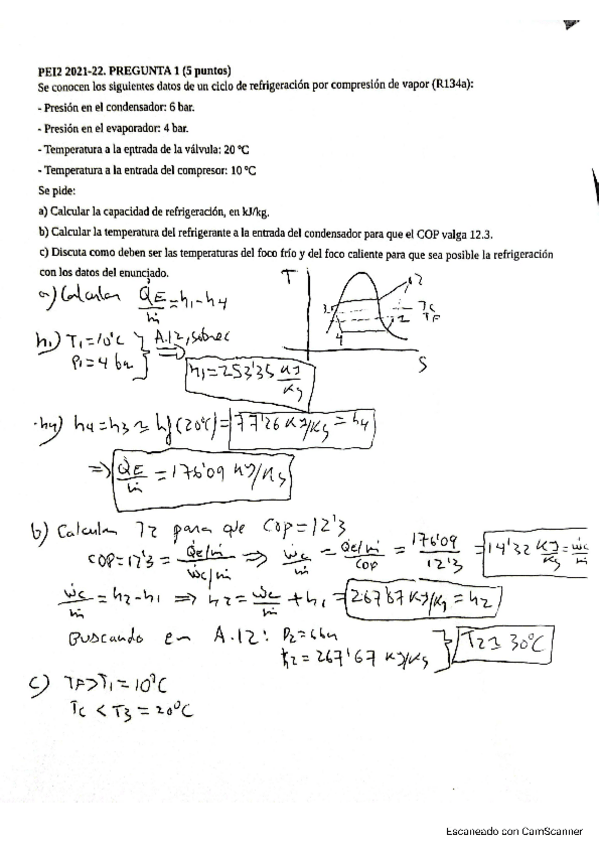 PEI2 2021-22. PREGUNTA 1 (5 puntos)
Se conocen los siguientes datos de un ciclo de refrigeración por compresión de vapor (R134a):
- Presión en el condensador: 6 bar.
- Presión en el evaporador: 4 bar.
- Temperatura a la entrada de la válvula: 20 ºC
- Temperatura a la entrada del compresor: 10 ºC
Se pide:
a) Calcular la capacidad de refrigeración, en kJ/kg.
b) Calcular la temperatura del refrigerante a la entrada del condensador para que el COP valga 12.3.
c) Discuta como deben ser las temperaturas del foco frío y del foco caliente para que sea posible la refrigeración
con los datos del enunciado.
a) Calcular Q̇E/ṁ = h1-h4
T 2 3 Tc TF 1 4 S
h1) T1=10ºC P1=4 bar } A.12, sobrec ⇒ h1=253'35 KJ/Kg
·h4) h4=h3≃hf(20ºC)=77'26 KJ/Kg=h4
⇒ Q̇E/ṁ = 176'09 KJ/Kg
b) Calcular T2 para que COP=12'3
COP=12'3= Q̇e/ṁ / Ẇc/ṁ ⇒ Ẇc/ṁ = Q̇e/ṁ / COP = 176'09 / 12'3 = 14'32 KJ/Kg = Ẇc/ṁ
Ẇc/ṁ = h2-h1 ⇒ h2= Ẇc/ṁ + h1= 267'67 KJ/Kg = h2
Buscando en A.12: P2=6 bar h2=267'67 KJ/Kg } T2≃30ºC
c) TF>T1=10ºC
Tc<T3=20ºC
Escaneado con CamScanner